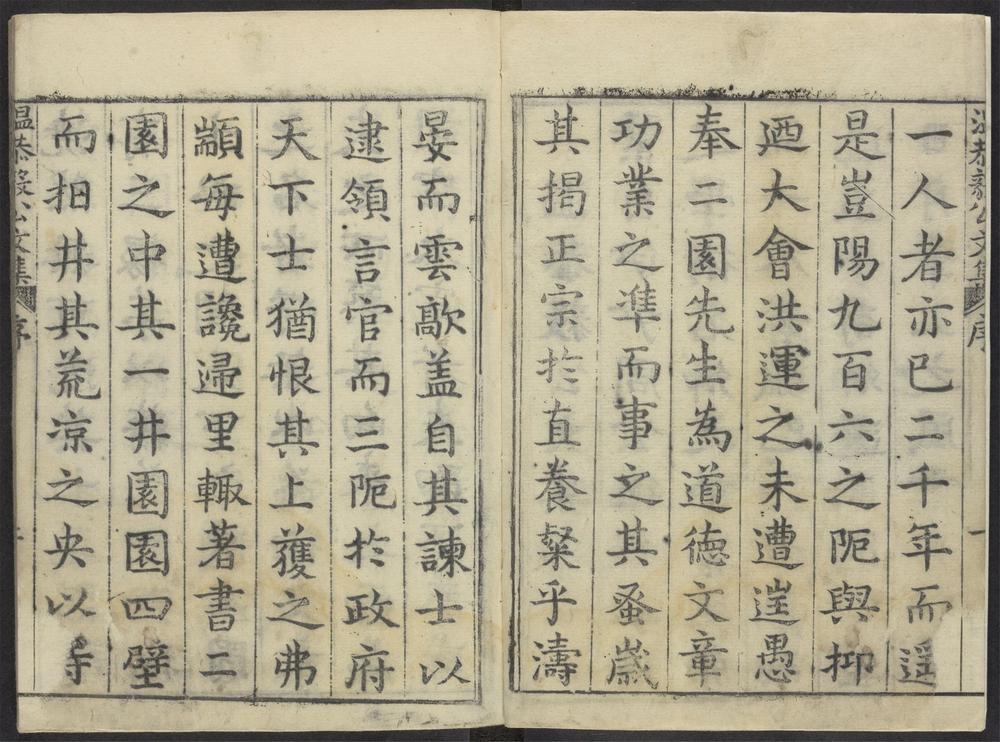 温恭毅公文集 序 一
一人者亦巳二千年而遥
是豈陽九百六之阨與抑
迺大會洪運之未遭遑愚
奉二園先生為道徳文章
功業之凖而事之其蚤歳
其揭正宗於直養粲乎濤
晏而雲歊盖自其諫士以
逮領言官而三阨於政府
天下士猶恨其上蒦之弗
顓每遭讒歸里輙著書二
園之中其一井園園四壁
而抇井其荒凉之央以
温恭毅公文集 序